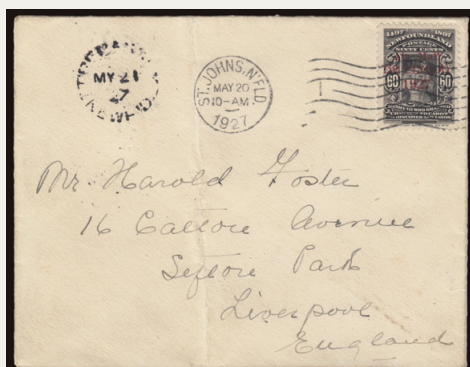 MY 21
27
ST. JOHN'S, N'F'LD
MAY 20
10-AM
1927
1497 1897
NEWFOUNDLAND
POSTAGE
SIXTY CENTS
60 60
Mr. Harold Foster
16 Avenue
Sefton Park
Liverpool
England